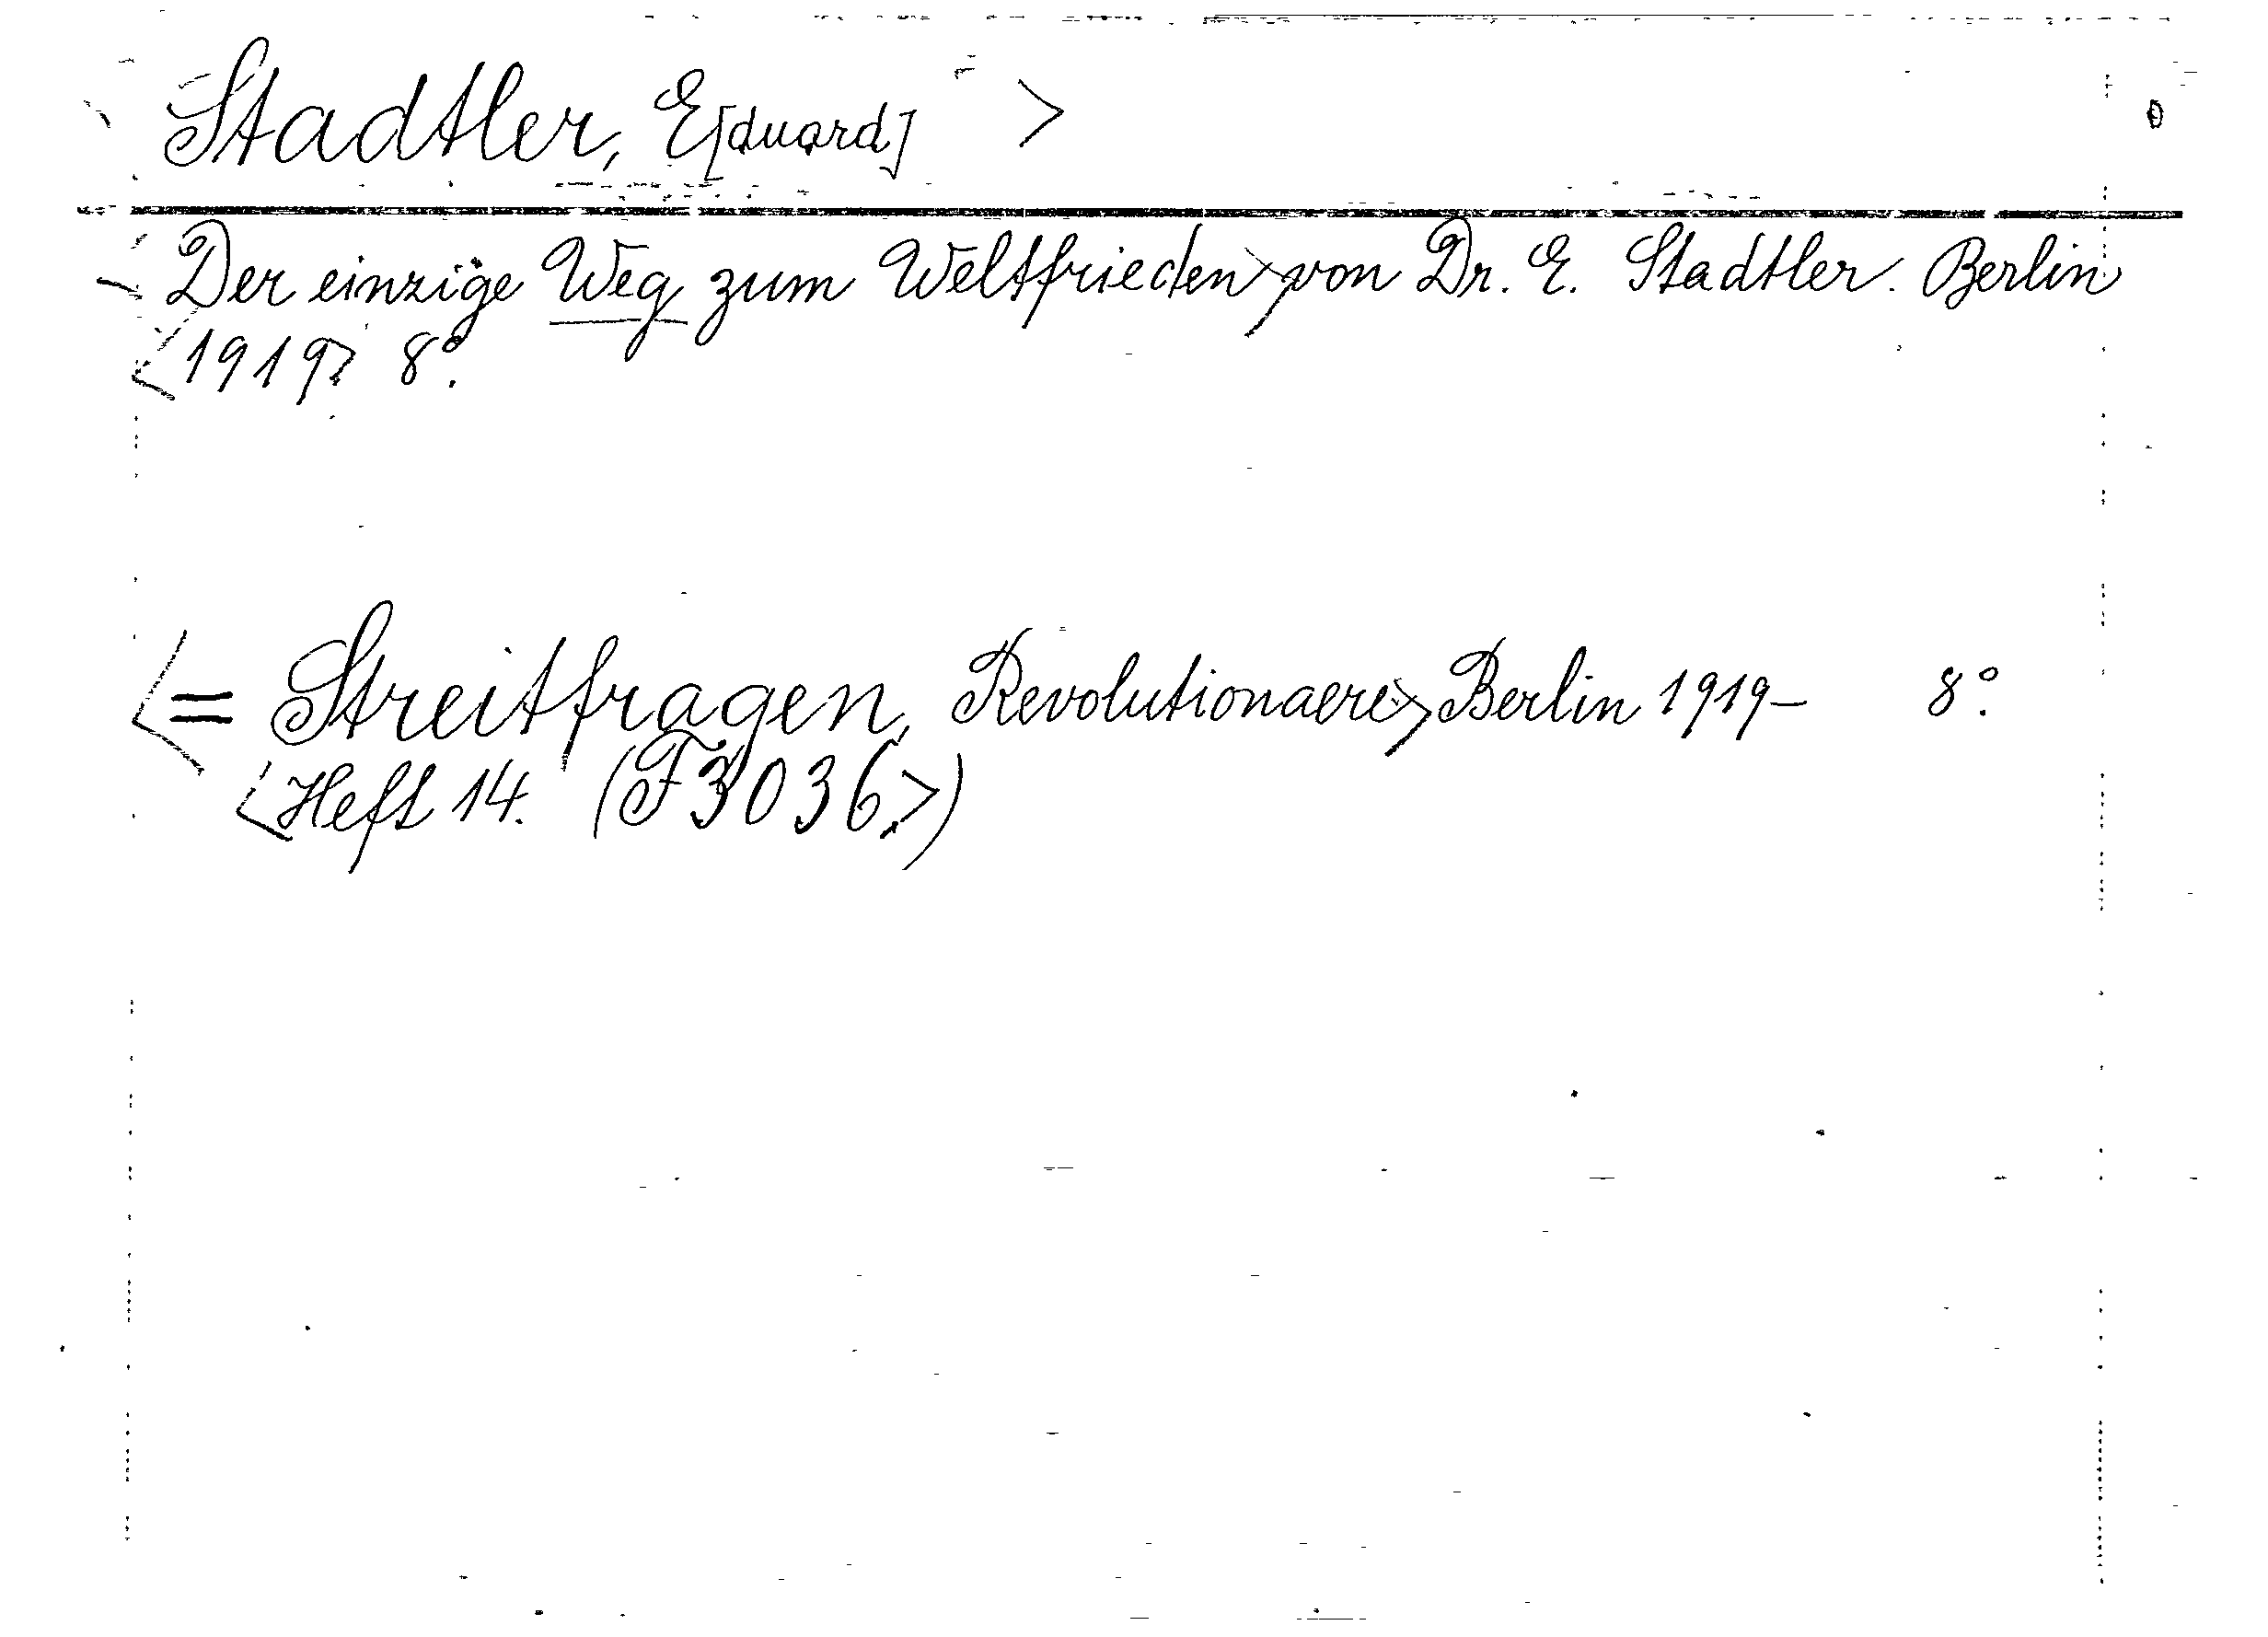 Stadtler, E[duard] >
Der einzige Weg zum Weltfrieden > von Dr. E. Stadtler. Berlin
<1919> 8°.
<= Streitfragen, Revolutionaere > Berlin 1919- 8°.
<Heft 14. (F 3036.>)